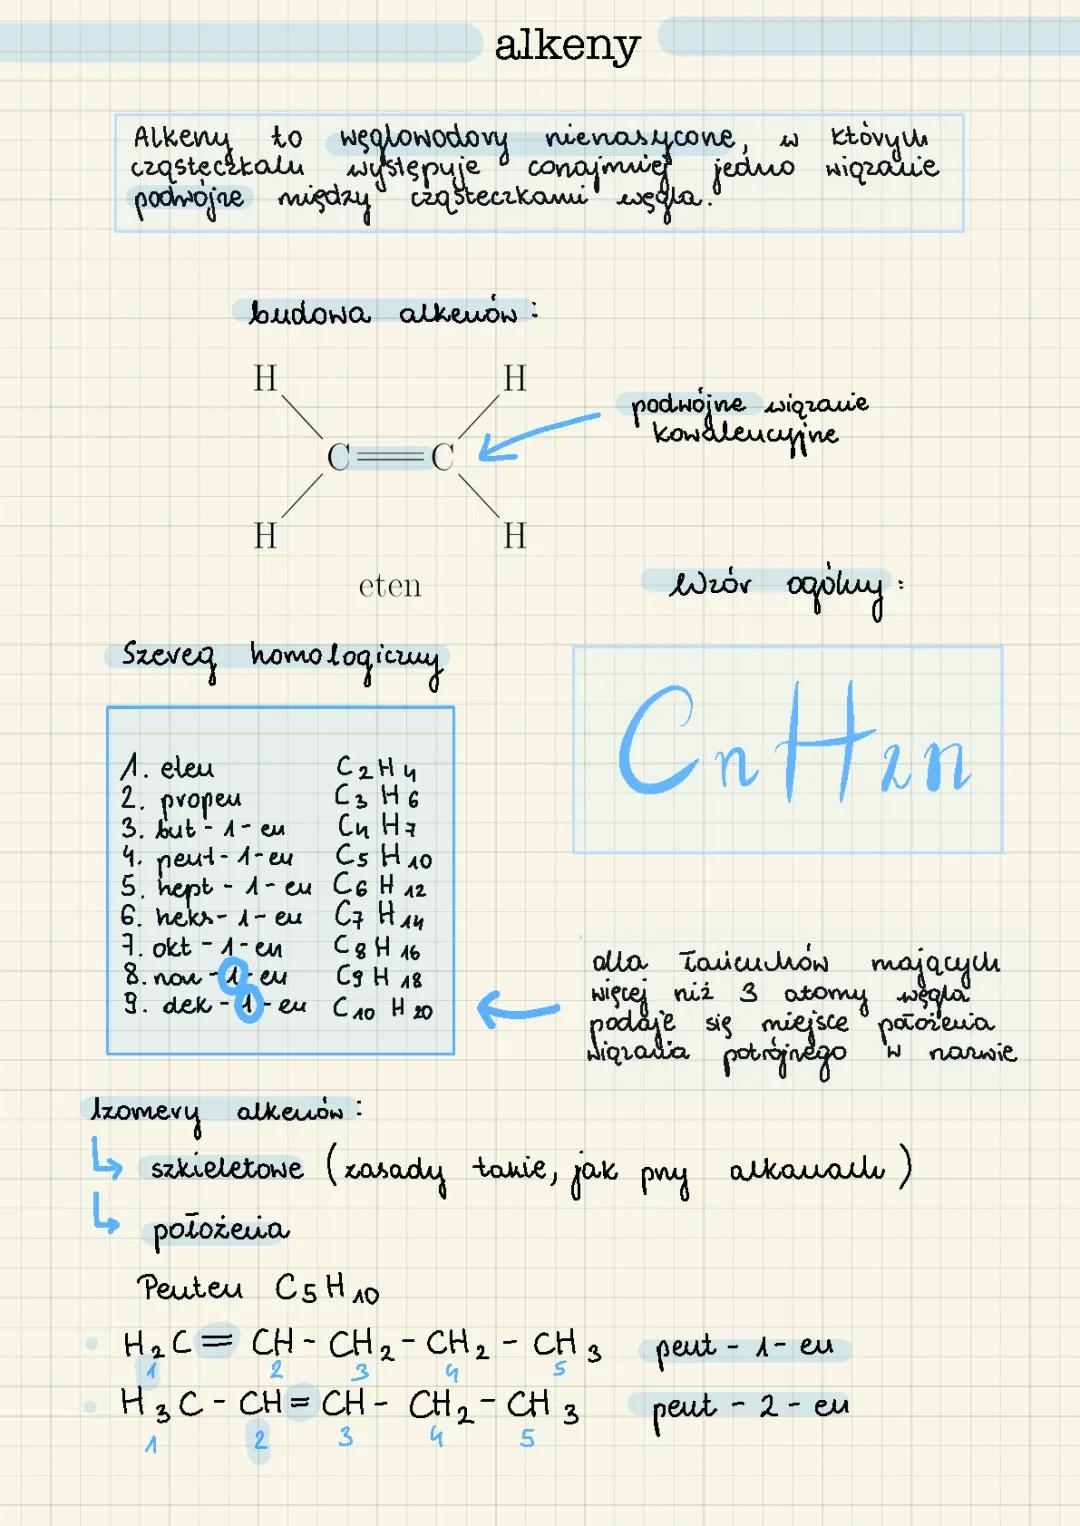 alkeny
Alkeny to węglowodory nienasycone, w których
cząsteczkach występuje conajmniej jedno wiązanie
podwójne między cząsteczkami węgla.
budowa alkenów:
H H
C C
H H
eten
podwójne wiązanie
kowalencyjne
Wzór ogólny:
CnH2n
Szereg homologiczny
1. eten C2H4
2. propen C3H6
3. but-1-en C4H7
4. pent-1-en C5H10
5. hept-1-en C6H12
6. heks-1-en C7H14
7. okt-1-en C8H16
8. non-1-en C9H18
9. dek-1-en C10H20
dla łańcuchów mających
więcej niż 3 atomy węgla
podaje się miejsce położenia
wiązania potrójnego w nazwie
Izomery alkenów:
szkieletowe (zasady takie, jak przy alkanach)
położenia
Penten C5H10
H2C=CH-CH2-CH2-CH3 pent-1-en
1 2 3 4 5
H3C-CH=CH-CH2-CH3 pent-2-en
1 2 3 4 5